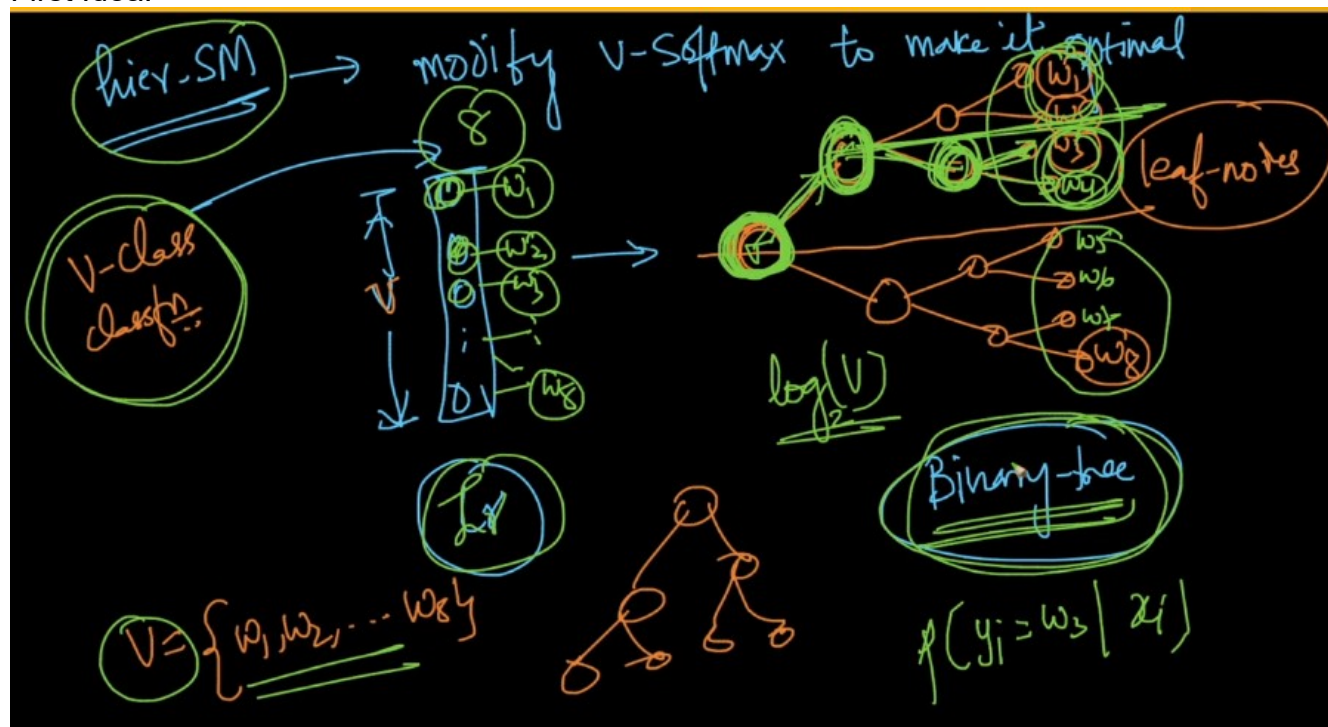 First idea:
hier-SM → modify V-Softmax to make it optimal
8
V-class
classfn
V
w1
w2
w3
w8
w1
w3
w4
leaf-nodes
w5
w6
w7
w8
log2(V)
Binary-tree
V = {w1, w2, ... w8}
p(yi = w3 | xi)